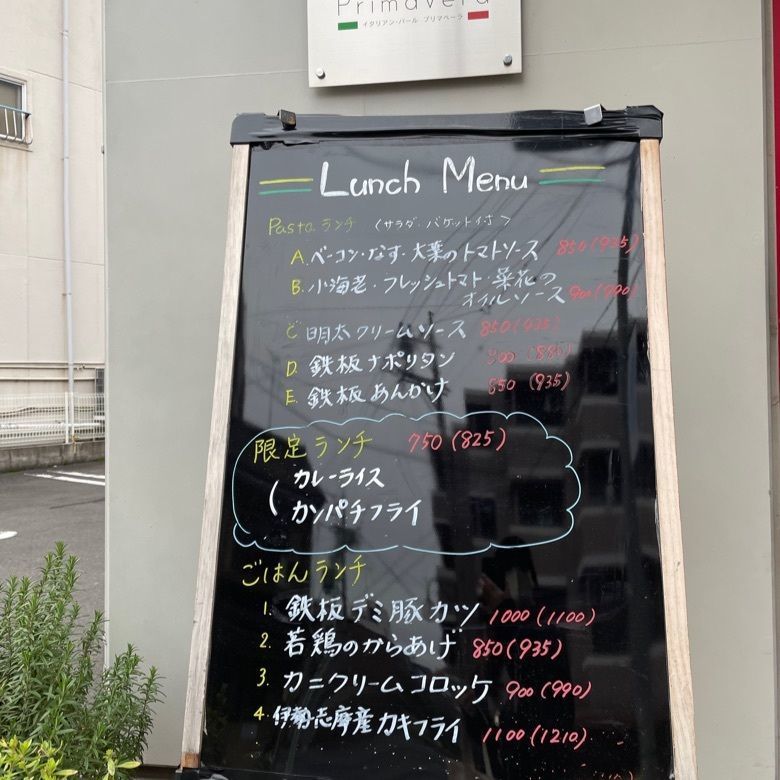 Primavera
イタリアン・バール プリマベーラ
Lunch Menu
Pasta ランチ (サラダ・バゲット付)
A. ベーコン・なす・大葉のトマトソース 850(935)
B. 小海老・フレッシュトマト・菜花の
オイルソース 900(990)
C. 明太クリームソース 850(935)
D. 鉄板ナポリタン 800(880)
E. 鉄板あんかけ 850(935)
限定ランチ 750(825)
カレーライス
カンパチフライ
ごはんランチ
1. 鉄板デミ豚カツ 1000(1100)
2. 若鶏のからあげ 850(935)
3. カニクリームコロッケ 900(990)
4. 伊勢志摩産カキフライ 1100(1210)